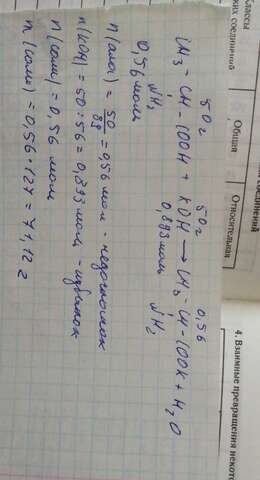 Классы
ких соединений
Общая
Относительная
соединений
4. Взаимные превращения некото
50г 50г 0,56
CH3 – CH – COOH + KOH → CH3 – CH – COOK + H2O
NH2 0,893 моль NH2
0,56 моль
n(алан) = 50/89 = 0,56 мол – недостаток
n(KOH) = 50 : 56 = 0,893 моль – избыток
n(соли) = 0,56 моль
m(соли) = 0,56 · 127 = 71,12 г